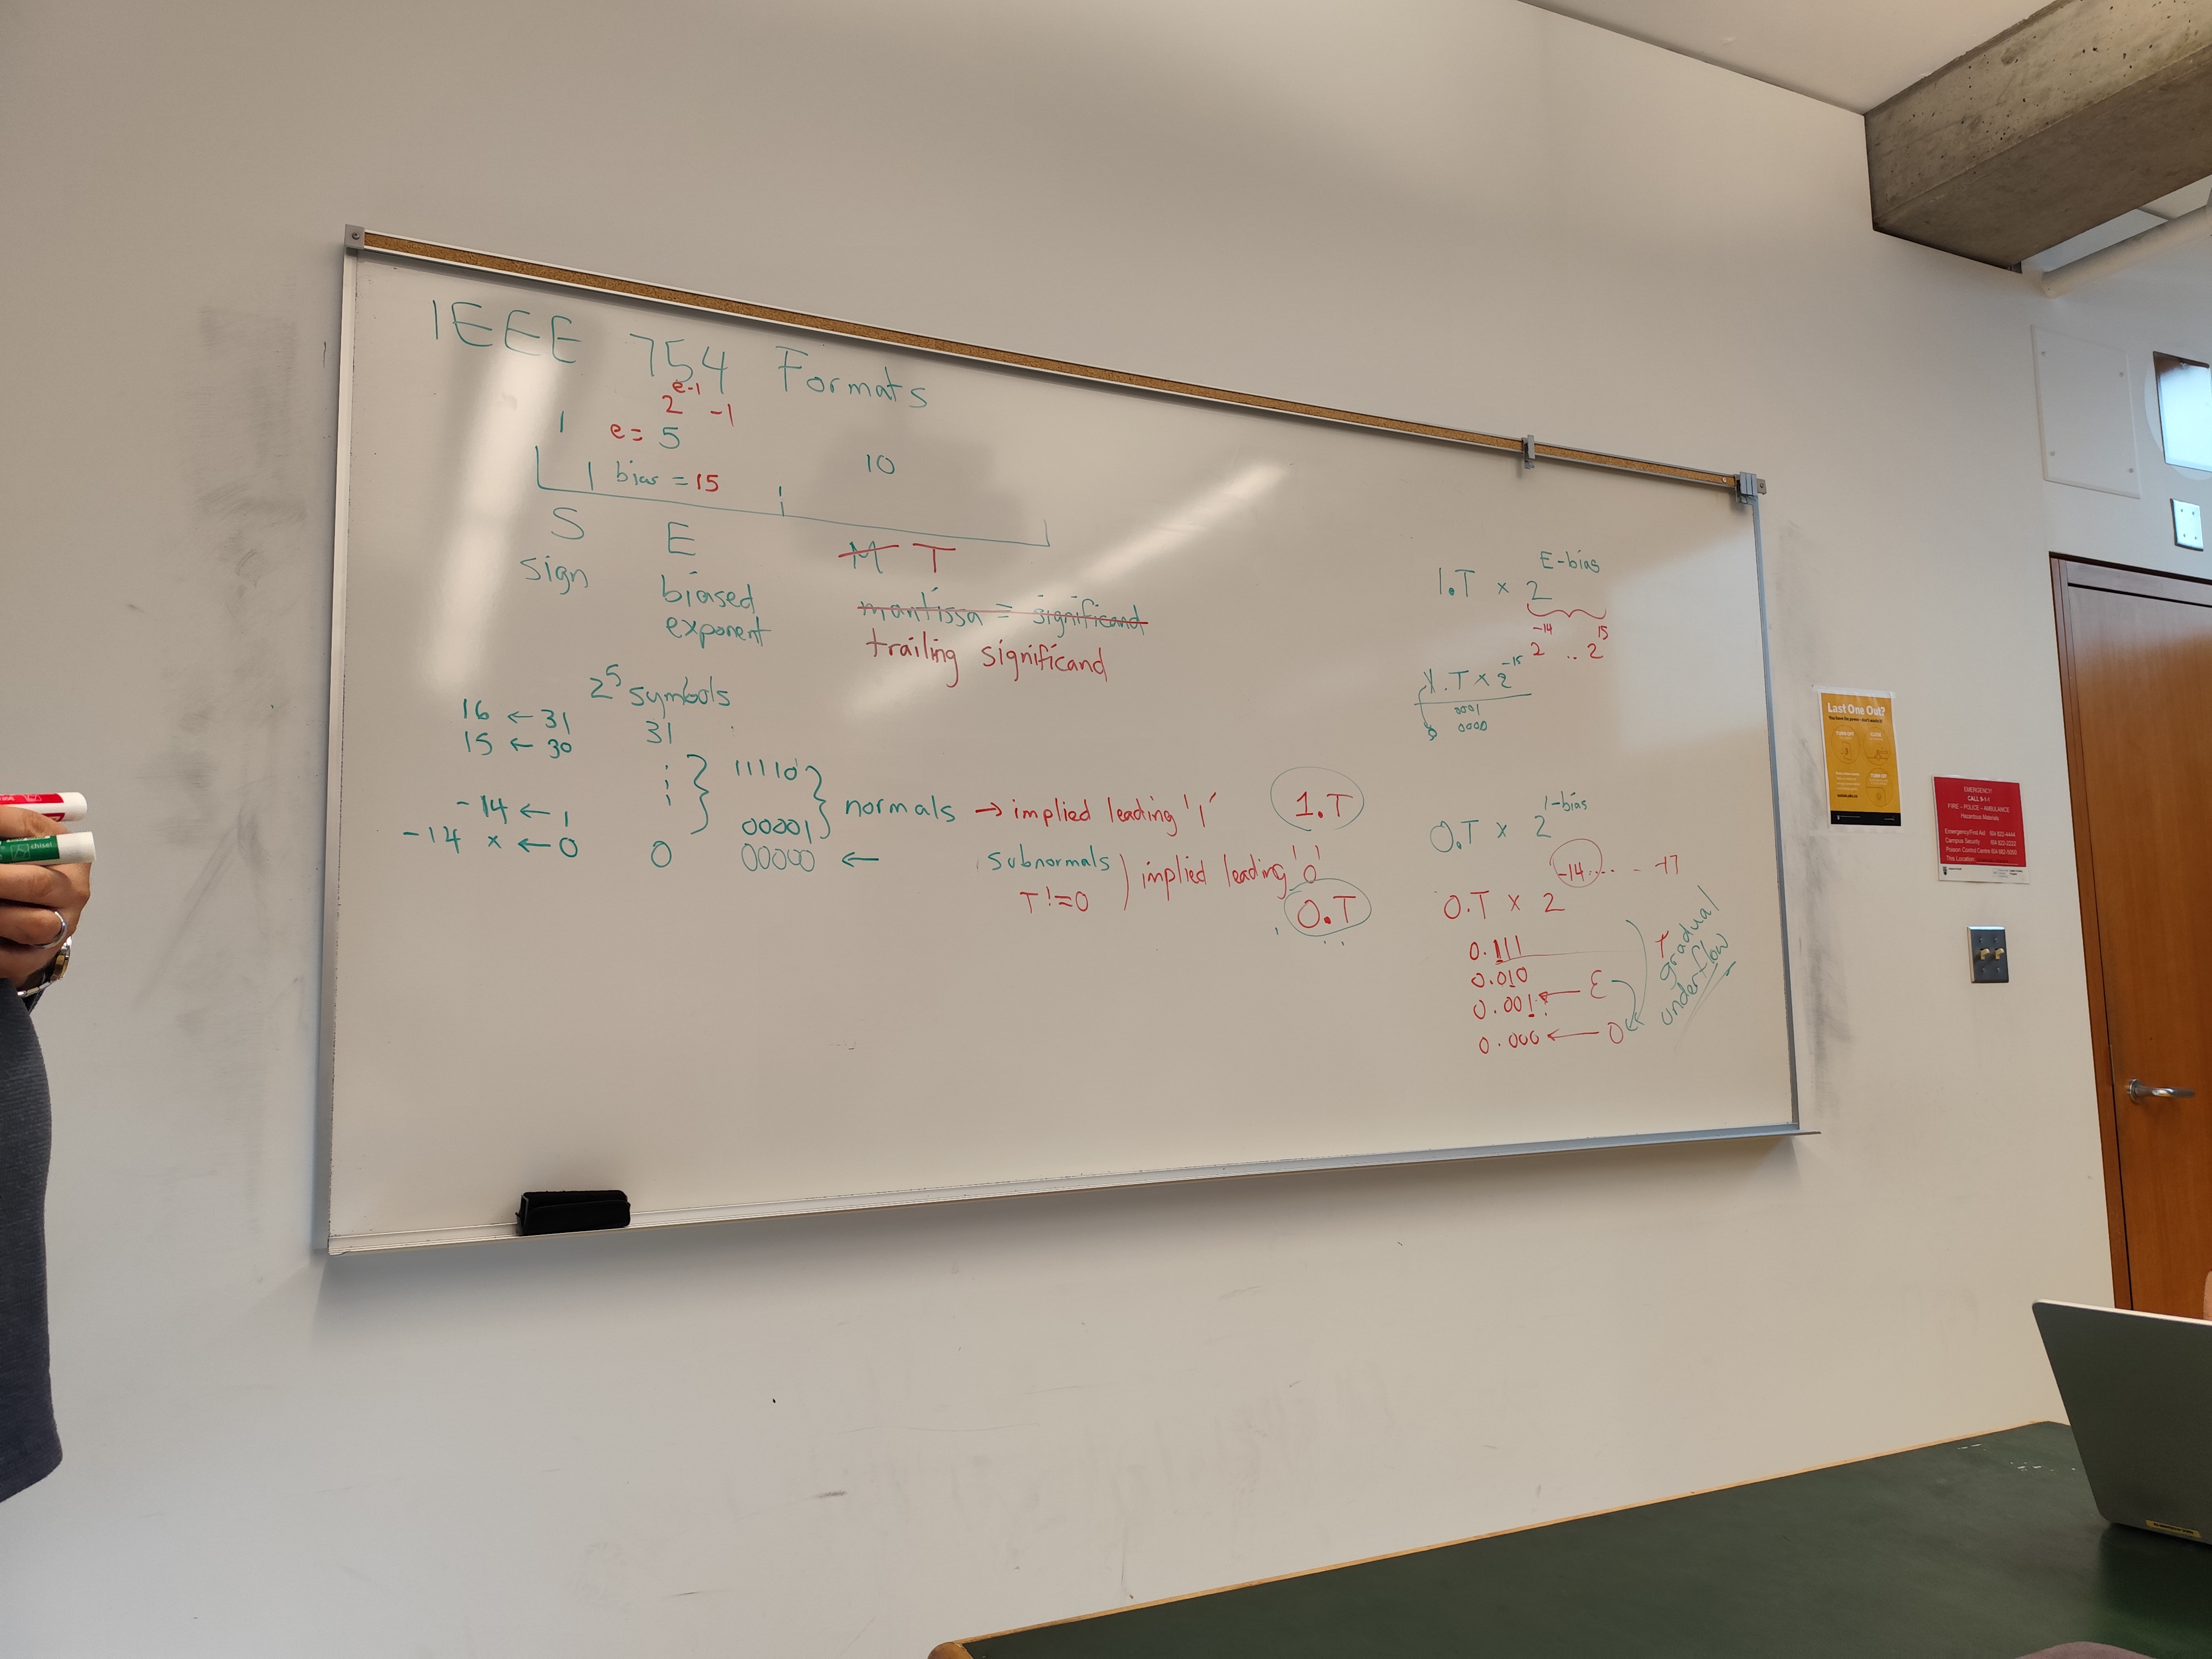 IEEE 754 Formats
2^(e-1) -1
1 e= 5 10
bias = 15
S E M T
sign biased exponent
mantissa = significand
trailing significand
2^5 symbols
16 ← 31
15 ← 30
-14 ← 1
-14 x ← 0
31
0
11110
00001
00000 ←
normals → implied leading '1' 1.T
subnormals
T!=0
implied leading '0'
0.T
1.T × 2^(E-bias)
2^-14 .. 2^15
1.T × 2^-15
0001
0000
0.T × 2^(1-bias)
0.T × 2^-14 .... -17
0.111
0.010
0.001 ← ε
0.000 ← 0
gradual
underflow
chisel
Last One Out?
TURN OFF
CLOSE
TURN OFF
EMERGENCY
CALL 9-1-1
FIRE – POLICE – AMBULANCE
Hazardous Materials
Emergency/First Aid 604 822-4444
Campus Security 604 822-2222
Poison Control Centre 604 682-5050
This Location: